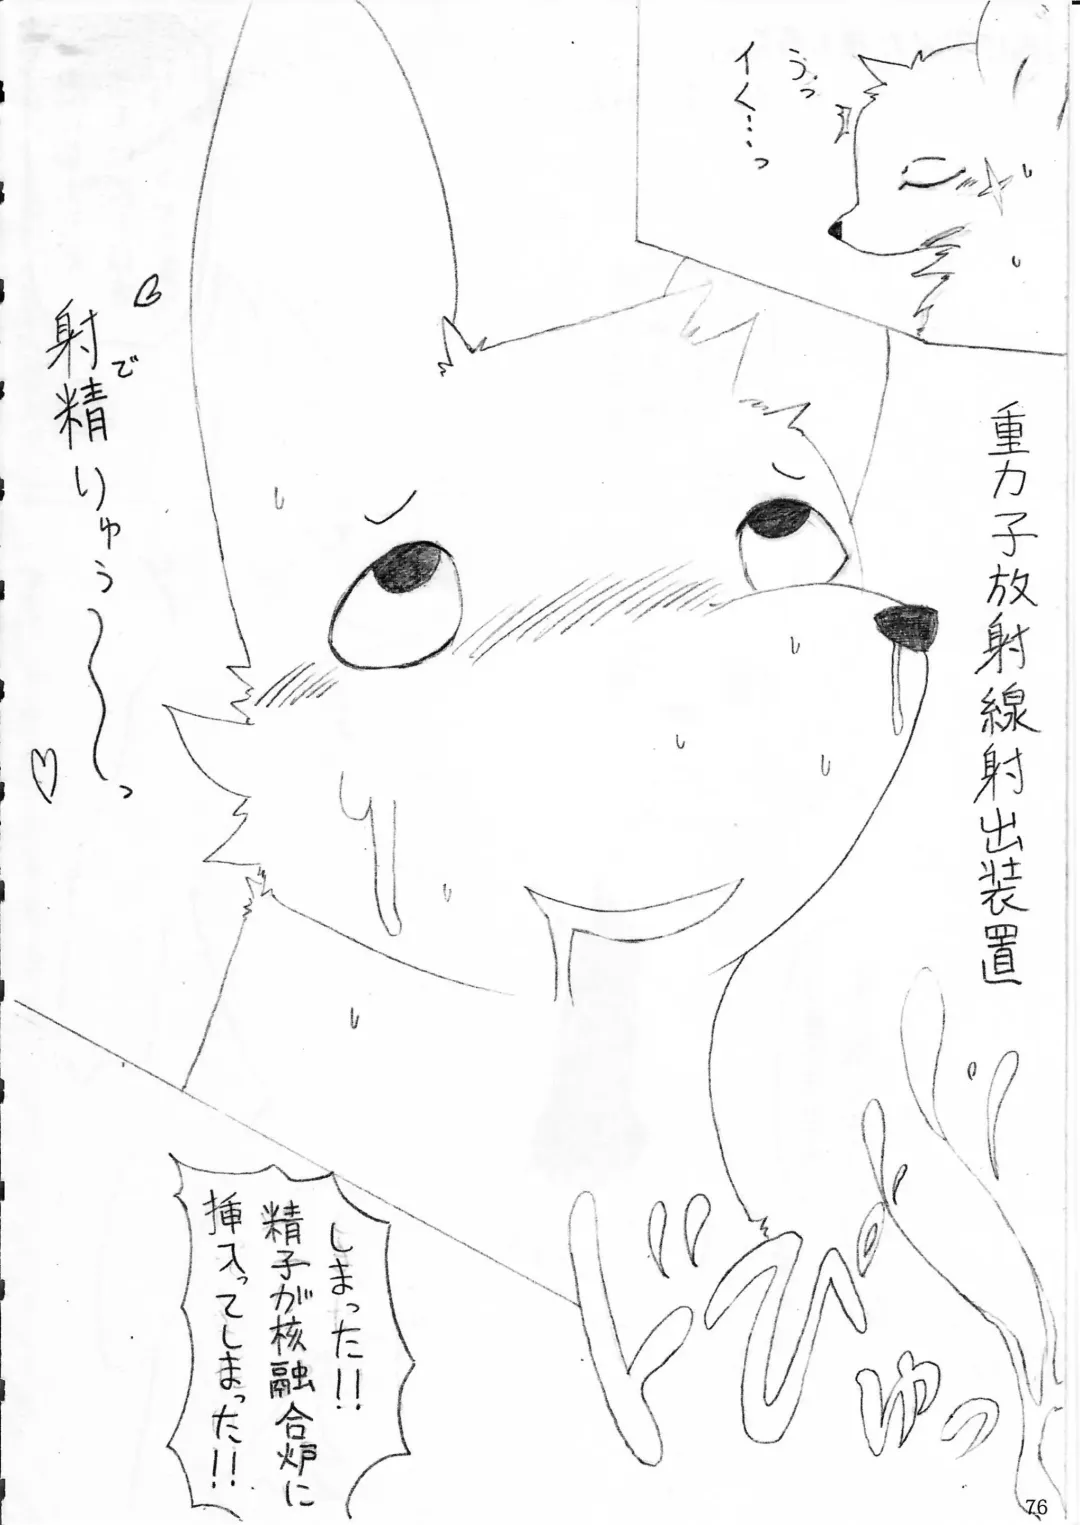 うっ
イく…っ
重力子放射線射出装置
射精りゅう〜〜っ
で
ドぴゅっ
しまった!!
精子が核融合炉に
挿入ってしまった!!
76